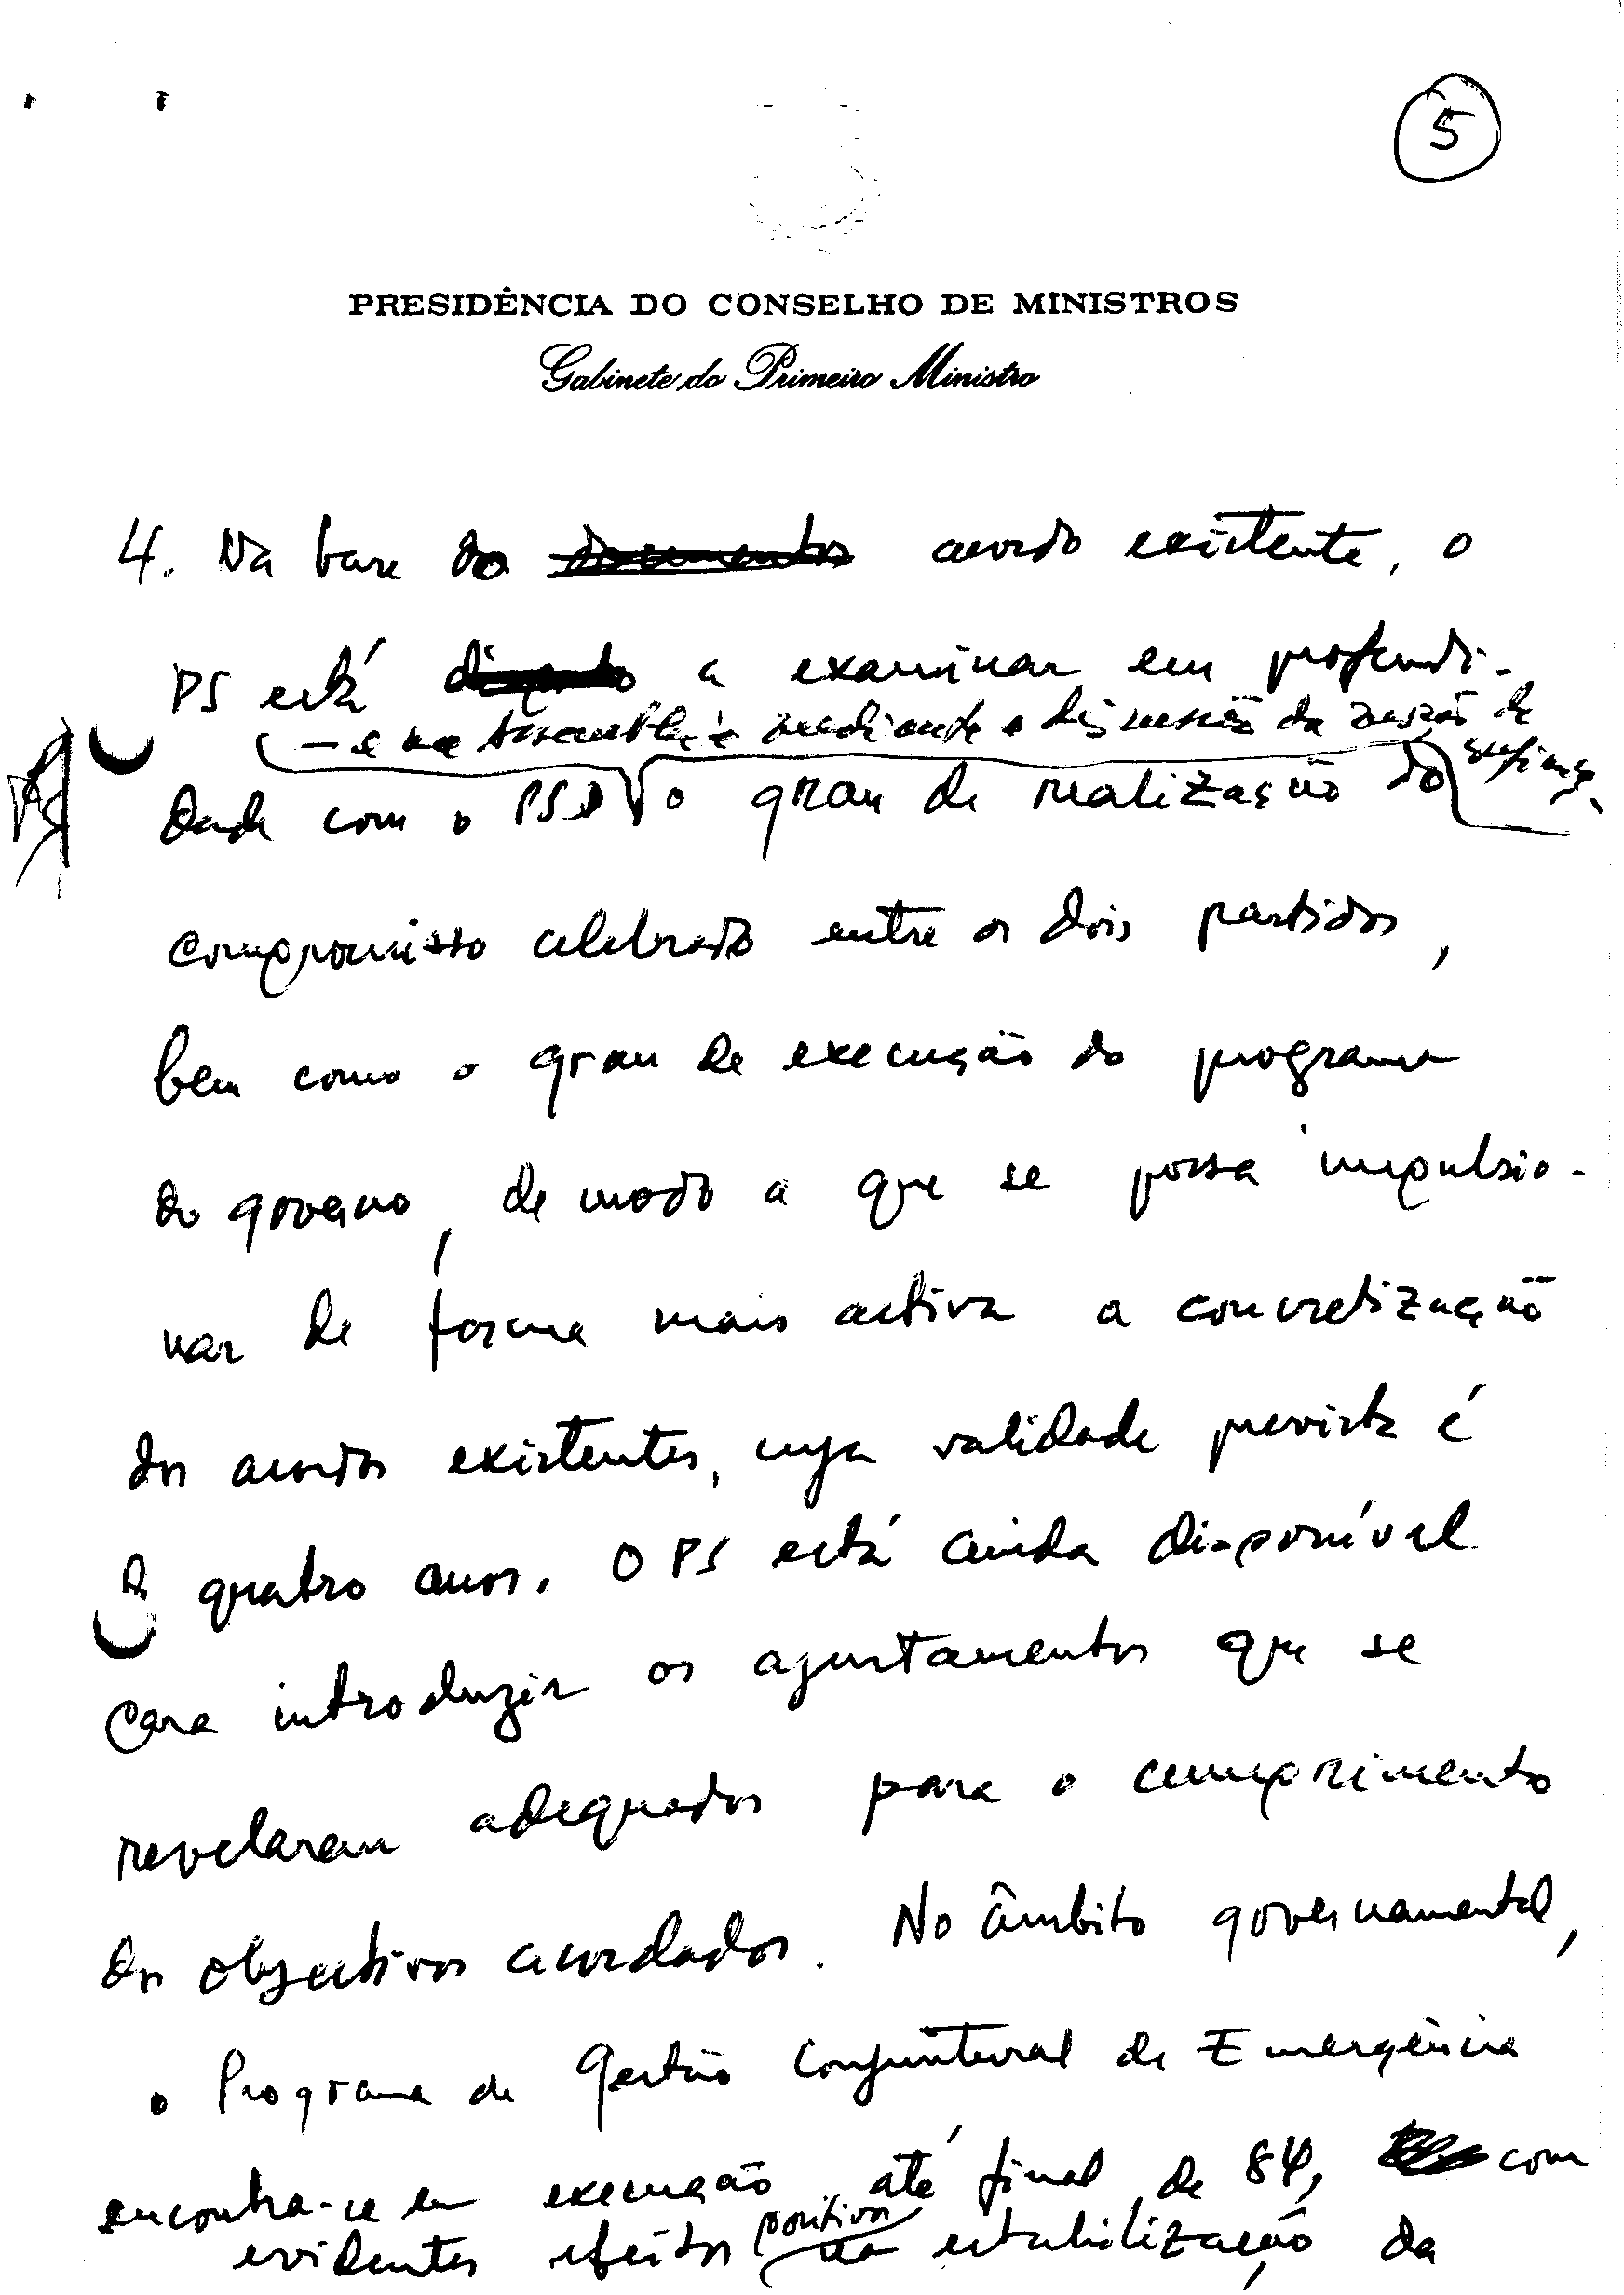 5
PRESIDÊNCIA DO CONSELHO DE MINISTROS
Gabinete do Primeiro Ministro
4. Na base do documentos acordo existente, o
PS está disposto a examinar em profundi-
— e na Assembleia mediante a discussão da moção de confiança
dade com o PSD o grau de realização do
compromisso celebrado entre os dois partidos,
bem como o grau de execução do programa
do governo, de modo a que se possa impulsio-
nar de forma mais activa a concretização
dos acordos existentes, cuja validade prevista é
de quatro anos. O PS está ainda disponível
para introduzir os ajustamentos que se
revelaram adequados para o cumprimento
dos objectivos acordados. No âmbito governamental,
o Programa de Gestão Conjuntural de Emergência
encontra-se em execução até final de 84, com
evidentes efeitos positivos na estabilização da